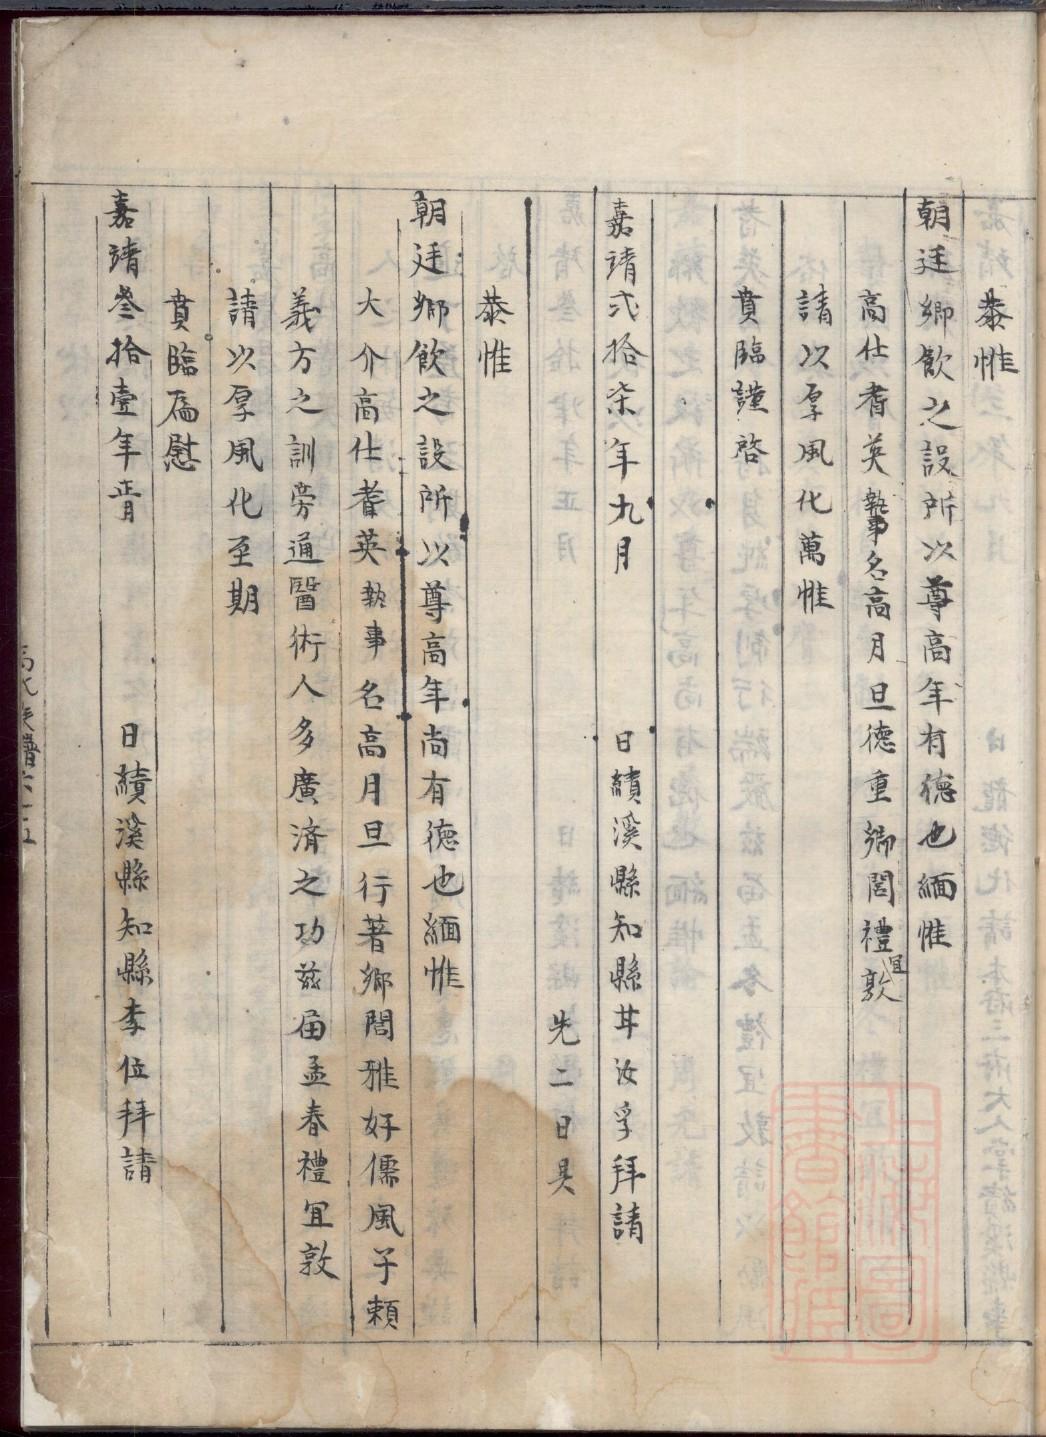 恭惟
朝廷鄉飲之設所以尊高年有德也緬惟
高仕耆英執事名高月旦德重鄉閭禮宜敦
請以厚風化萬惟
賁臨謹啓
嘉靖弍拾柒年九月　日績溪縣知縣井汝孚拜請
先二日具
恭惟
朝廷鄉飲之設所以尊高年尚有德也緬惟
大介高仕耆英執事名高月旦行著鄉閭雅好儒風子賴
義方之訓旁通醫術人多廣濟之功茲屆孟春禮宜敦
請以厚風化至期
賁臨爲慰
嘉靖叁拾壹年正月　日績溪縣知縣李位拜請